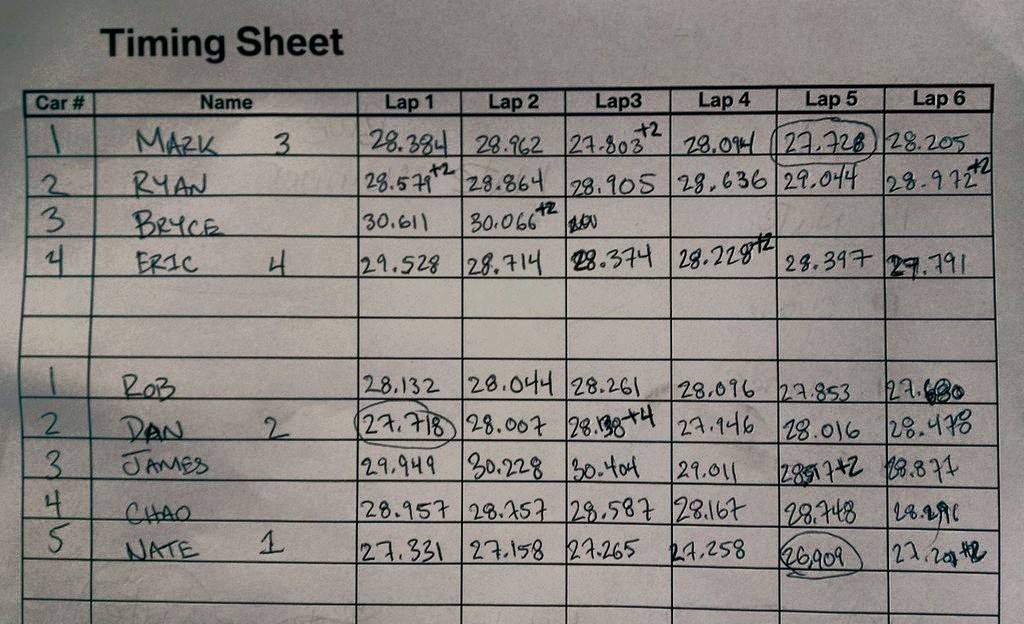 Timing Sheet
Car # Name Lap 1 Lap 2 Lap3 Lap 4 Lap 5 Lap 6
1 MARK 3 28.384 28.962 27.803+2 28.094 27.728 28.205
2 RYAN 28.579+2 28.864 28.905 28.636 29.044 28.972+2
3 BRYCE 30.611 30.066+2
4 ERIC 4 29.528 28.714 28.374 28.228+2 28.397 29.791
1 ROB 28.132 28.044 28.261 28.096 27.853 27.680
2 DAN 2 27.718 28.007 28.138+4 27.946 28.016 28.478
3 JAMES 29.949 30.228 30.404 29.011 28.877
4 CHAO 28.957 28.757 28.587 28.167 28.748
5 NATE 1 27.331 27.158 27.265 27.258 26.909